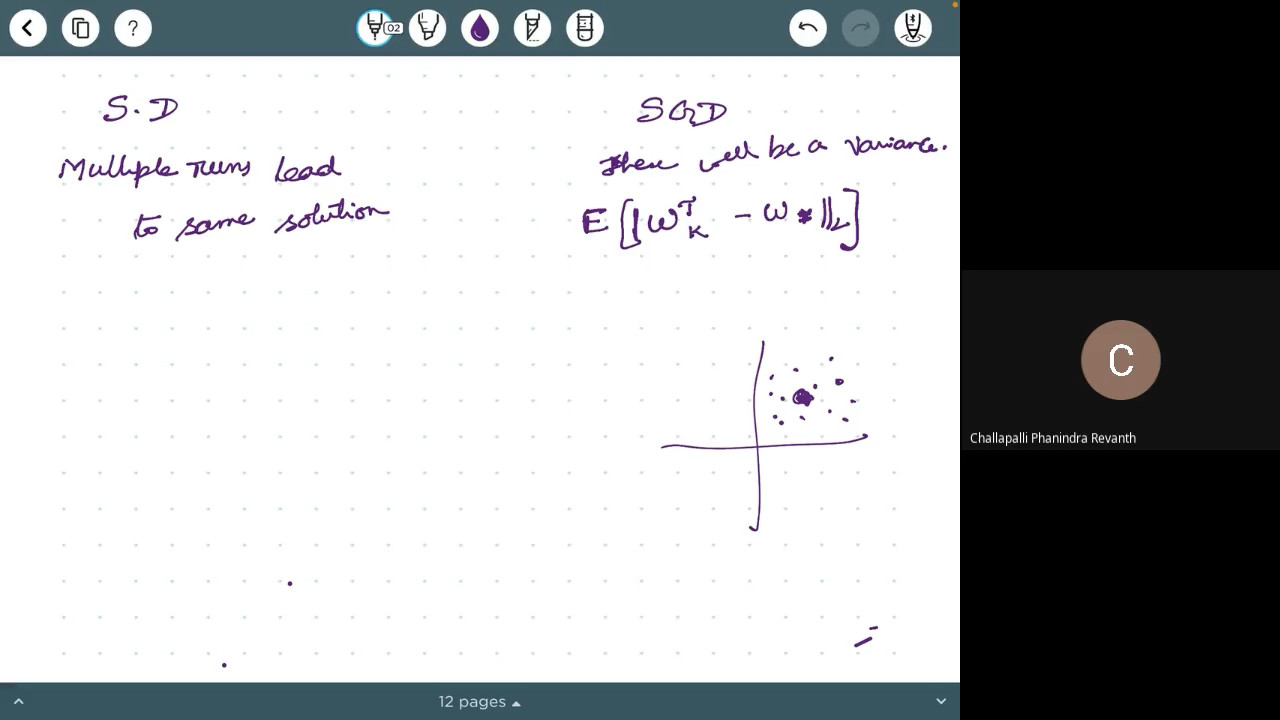 02
?
S.D
Multiple runs lead
to same solution
SGD
There will be a variance.
E[||ω_K^T - ω*||_2]
C
Challapalli Phanindra Revanth
12 pages